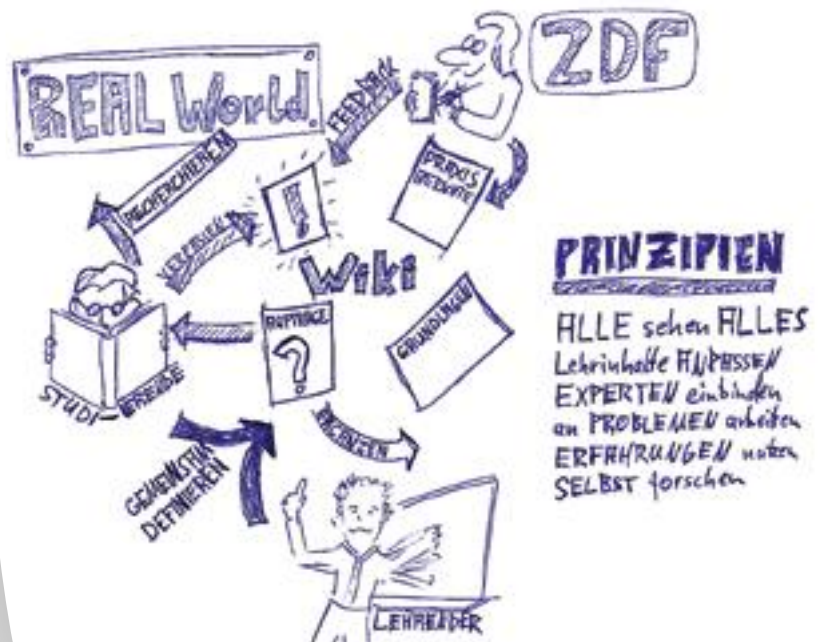 REAL World
ZDF
FEEDBACK
RECHERCHIEREN
PRAXIS
VERFASSEN
!
Wiki
AUFTRÄGE
?
GRUNDLAGEN
STUDI-ERENDE
ERGÄNZEN
GEMEINSAM
DEFINIEREN
LEHRENDER
PRINZIPIEN
ALLE sehen ALLES
Lehrinhalte ANPASSEN
EXPERTEN einbinden
an PROBLEMEN arbeiten
ERFAHRUNGEN nutzen
SELBST forschen